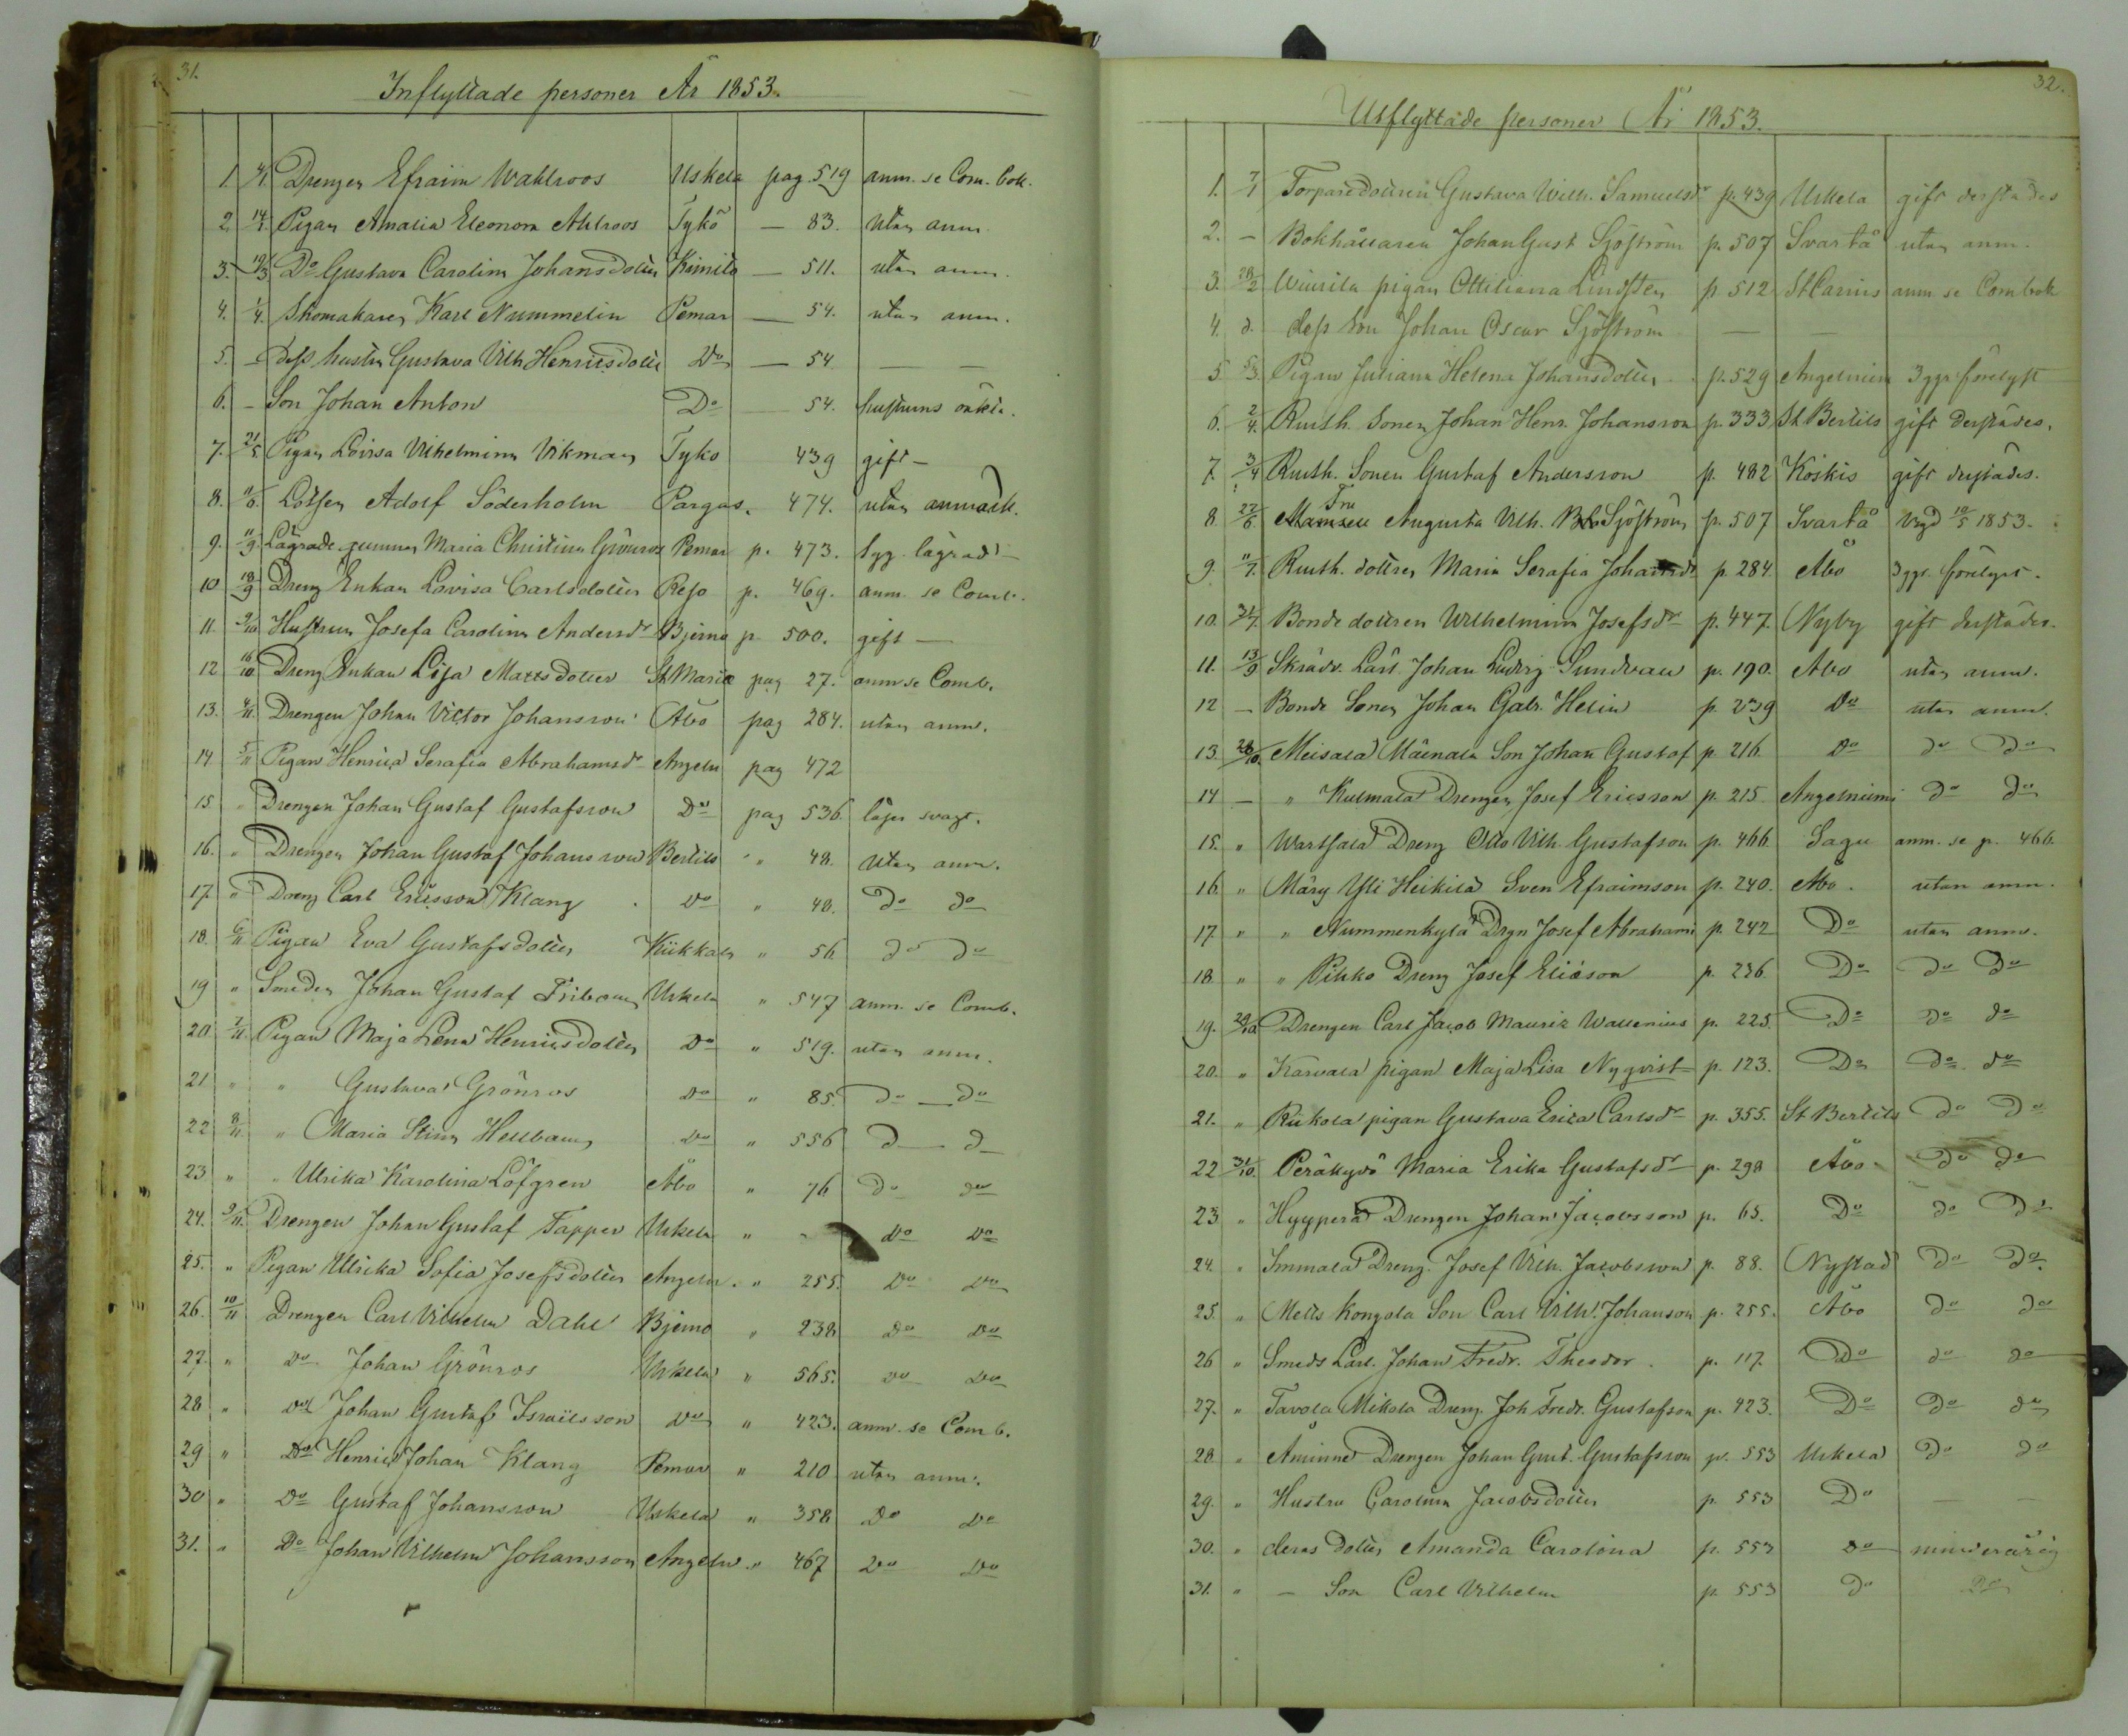 31.
Inflyttade personer År 1853.
1. 4/1. Drengen Efraim Wahlroos Uskela pag. 519 anm. se Com. bok.
2. 14/1. Pigan Amalia Eleonora Ahlroos Tykö — 83. utan anm.
3. 19/3 Do Gustava Carolina Johansdotter Kimito — 511. utan anm.
4. 1/4. Skomakaren Karl Nummelin Pemar — 54. utan anm.
5. — dess hustru Gustava Vilh. Henricsdotter Do — 54 — —
6. — Son Johan Anton Do 54. hustruns oäkta.
7. 21/5. Pigan Lovisa Vilhelmina Vikman Tyko 439 gift —
8. 11/6. Lotsen Adolf Söderholm Pargas. 474. utan anmärk.
9. 11/9. Lägrade qvinnan Maria Christina Grönroos Pemar p. 473. lägrad —
10 18/9 Dreng Enkan Lovisa Carlsdotter Reso p. 469. anm. se Comb.
11. 9/10 Hustrun Josefa Carolina Andersdr Bjerno p. 500. gift —
12 16/10 Dreng Enkan Lisa Mattsdotter St Marie pag 27. anm se Comb.
13. 4/11. Drengen Johan Victor Johansson Åbo pag 284. utan anm.
14 5/11 Pigan Henrica Serafia Abrahamsdr Angeln pag 472
15 " Drengen Johan Gustaf Gustafsson Do pag 536. läser svagt.
16. " Drengen Johan Gustaf Johansson Bertils " 48. utan anm.
17. " Dreng Carl Ericsson Klang Do " 40. Do do
18. 6/11 Pigan Eva Gustafsdotter Kiikkala " 56 do do
19 " Smeden Johan Gustaf Uskela " 547 anm. se Comb.
20 7/11. Pigan Maja Lena Henricsdotter Do " 519. utan anm.
21 " " Gustava Grönros Do " 85. do — do
22 8/11. " Maria Stina Do " 556 d — d
23 " " Ulrika Karolina Löfgren Åbo " 76 do do
24. 9/11. Drengen Johan Gustaf Tapper Uskela " - do do
25. " Pigan Ulrika Sofia Josefsdotter Angeln. " 255. Do Do
26. 10/11 Drengen Carl Vilhelm Dahl Bjerno " 238 Do Do
27. " Do Johan Grönros Uskela " 565. Do Do
28 " Do Johan Gustaf Israilsson Do " 423. anm. se Comb.
29 " Do Henric Johan Klang Pemar " 210 utan anm.
30 " Do Gustaf Johansson Uskela " 358 Do Do
31. " Do Johan Vilhelm Johansson Angeln. " 467 Do Do
32.
Utflyttade personer År 1853.
1. 7/1 Torparedottren Gustava Wilh. Samuelsdr p. 439 Uskela gift derstädes
2. — Bokhållaren Johan Gust Sjöström p. 507 Svartå utan anm.
3. 28/2 Wiurila pigan Ottiliana Lindsten p 512 St Carins anm se Combok
4. d. dess son Johan Oscar Sjöström — —
5 5/3. Pigan Juliana Helena Johansdotter p. 529 Angelniemi 3 ggr förelyst
6. 2/4. Rusth. Sonen Johan Henr. Johansson p. 333 St Bertils gift derstädes.
7. 3/4 Rusth. Sonen Gustaf Andersson p. 482 Koskis gift derstädes.
8. 22/6 Mamsell Fru Augusta Vilh. Sjöström p. 507 Svartå Vigd 10/5 1853.
9. 11/7. Rusth. dottren Maria Serafia Johansdr p. 284. Åbo 3 ggr. förelyst.
10. 31/7. Bonde dottren Wilhelmina Josefsdr p. 447. Nyby gift derstädes.
11. 13/9 Skrädd. Lärl. Johan Ludvig Sundvall p. 190. Åbo utan anm.
12 — Bonde Sonen Johan Gabr. Helin p. 239 Do utan anm.
13. 28/10. Meisala Mäenala Son Johan Gustaf p. 216. Do do Do
14 — " Kulmala Drengen Josef Ericsson p. 215 Angelniemi do do
15. " Wartsala Dreng Otto Vilh. Gustafsson p. 466. Sagu anm. se p. 466.
16. " Märy Yli Heikilä Sven Efraimson p. 240. Åbo. utan anm.
17. " " Nummenkylä Drgn Josef Abrahams p. 242 Do utan anm.
18. " " Pikko Dreng Josef Eliäson p. 236 Do do Do
19. 29/10 Drengen Carl Jacob Mauriz Wallenius p. 225. Do do do
20. " Karvala pigan Maja Lisa Nyqvist p. 123. Do do do
21. " Riikola pigan Gustava Erica Carlsdr p. 355. St Bertils do do
22 31/10. Peräkylä Maria Erika Gustafsdr p. 298 Åbo do do
23. " Hyyperä Drengen Johan Jacobsson p. 65. Do do Do
24. " Immala Dreng. Josef Vilh. Jacobsson p. 88. Nystad do do.
25. " Metts Kongola Son Carl Vilh. Johanson p. 255. Åbo do do
26 " Smeds Lärl. Johan Fredr. Theodor. p. 117. Do do do
27. " Tavola Mikola Dreng Joh Fredr. Gustafson p. 423. Do do do
28. " Åminne Drengen Johan Gust. Gustafsson p. 553 Uskela do do
29. " Hustru Carolina Jacobsdotter p. 553 Do — —
30. " deras dotter Amanda Carolina p. 553 do minderårig
31. " — Son Carl Vilhelm p. 553 do Do